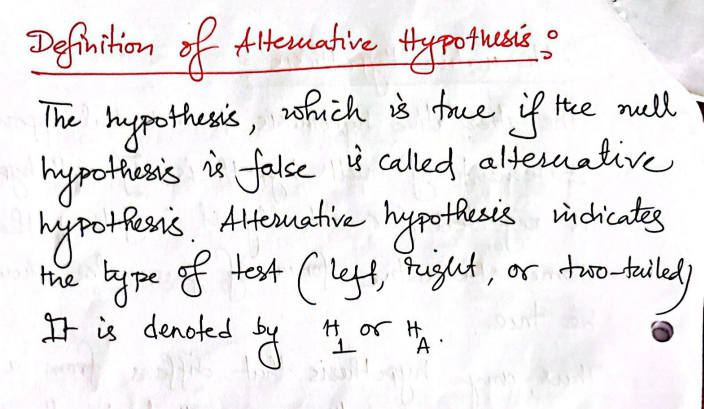 Definition of Alternative Hypothesis :
The hypothesis, which is true if the null
hypothesis is false is called alternative
hypothesis. Alternative hypothesis indicates
the type of test (left, right, or two-tailed)
It is denoted by H₁ or H_A.